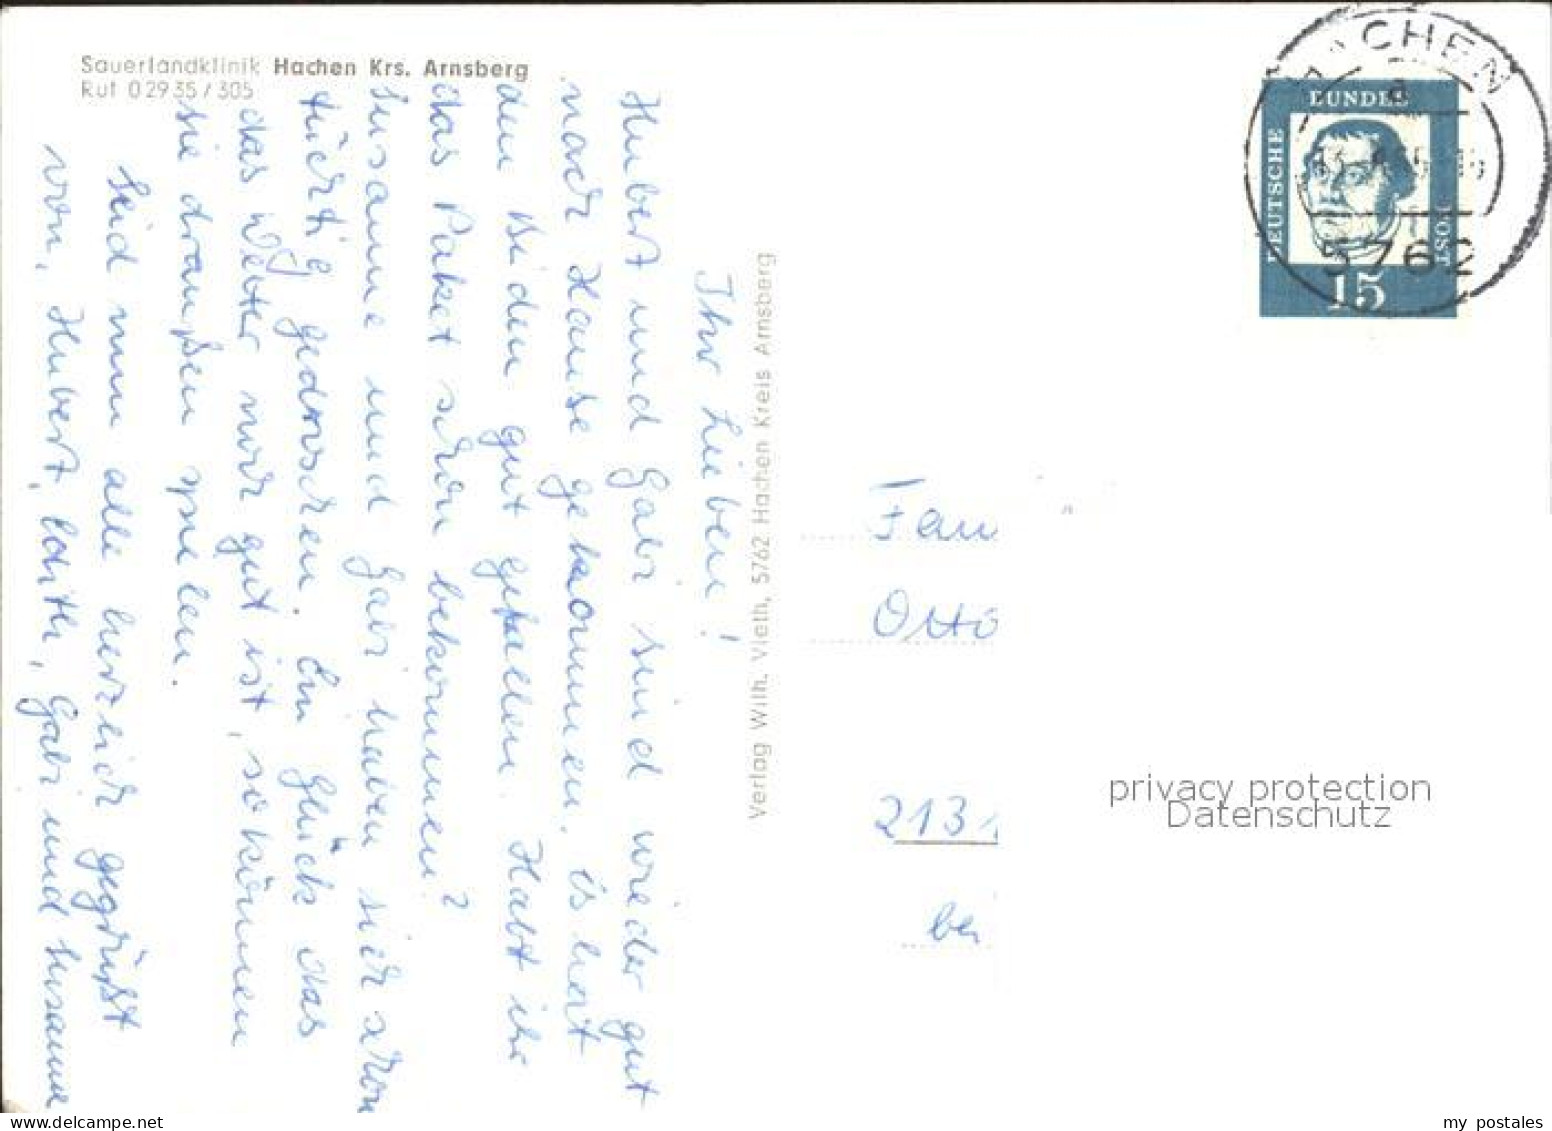 Sauerlandklinik Hachen Krs. Arnsberg
Ruf 0 29 35 / 305
Ihr Lieben!
Hubert und Gabi sind wieder gut
nach Hause gekommen. Es hat
den Beiden gut gefallen. Habt ihr
das Paket schon bekommen?
Susanne und Gabi haben sich schon
tüchtig gedroschen. Ein Glück das
das Wetter noch gut ist, so können
sie draußen spielen.
Seid nun alle herzlich gegrüßt
von, Hubert, Edith, Gabi und Susanne
Verlag Wilh. Vieth, 5762 Hachen Kreis Arnsberg
HACHEN
a
5762
DEUTSCHE
BUNDES
POST
15
Fam
Otto
2131
bei
privacy protection
Datenschutz
my postales